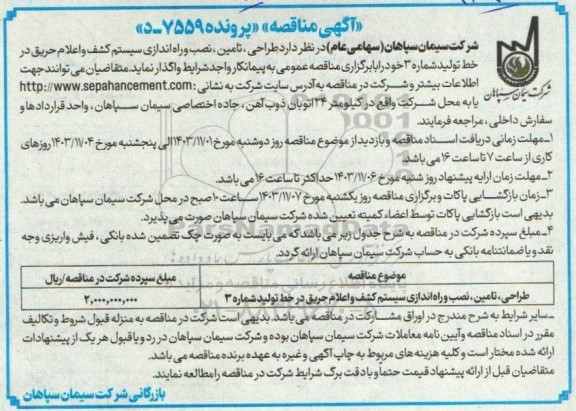 «آگهی مناقصه» «پرونده ۷۵۵۹ـ د»
شرکت سیمان سپاهان (سهامی عام) در نظر دارد طراحی، تامین، نصب و راه اندازی سیستم کشف و اعلام حریق در
خط تولید شماره ۳ خود را با برگزاری مناقصه عمومی به پیمانکار واجد شرایط واگذار نماید. متقاضیان می توانند جهت
اطلاعات بیشتر و شرکت در مناقصه به آدرس سایت شرکت به نشانی: http://www.sepahancement.com
یا به محل شرکت واقع در کیلومتر ۲۴ اتوبان ذوب آهن، جاده اختصاصی سیمان سپاهان، واحد قراردادها و
سفارش داخلی، مراجعه فرمایند.
شرکت سیمان سپاهان
۱ـ مهلت زمانی دریافت اسناد مناقصه و بازدید از موضوع مناقصه روز دوشنبه مورخ ۱۴۰۳/۱۱/۰۱ الی پنجشنبه مورخ ۱۴۰۳/۱۱/۰۴ روزهای
کاری از ساعت ۷ تا ساعت ۱۶ می باشد.
۲ـ مهلت زمان ارایه پیشنهاد روز شنبه مورخ ۱۴۰۳/۱۱/۰۶ حداکثر تا ساعت ۱۶ می باشد.
۳ـ زمان بازگشایی پاکات و برگزاری مناقصه روز یکشنبه مورخ ۱۴۰۳/۱۱/۰۷ ساعت ۱۰ صبح در محل شرکت سیمان سپاهان می باشد.
بدیهی است بازگشایی پاکات توسط اعضاء کمیته تعیین شده شرکت سیمان سپاهان صورت می پذیرد.
۴ـ مبلغ سپرده شرکت در مناقصه به شرح جدول زیر می باشد که می بایست به صورت چک تضمین شده بانکی، فیش واریزی وجه
نقد و یا ضمانتنامه بانکی به حساب شرکت سیمان سپاهان ارائه گردد.
موضوع مناقصه مبلغ سپرده شرکت در مناقصه/ریال
طراحی، تامین، نصب و راه اندازی سیستم کشف و اعلام حریق در خط تولید شماره ۳ ۲,۰۰۰,۰۰۰,۰۰۰
ـ سایر شرایط به شرح مندرج در اوراق مشارکت در مناقصه می باشد. بدیهی است شرکت در مناقصه به منزله قبول شروط و تکالیف
مقرر در اسناد مناقصه و آیین نامه معاملات شرکت سیمان سپاهان بوده و شرکت سیمان سپاهان در رد و یا قبول هر یک از پیشنهادات
ارائه شده مختار است و کلیه هزینه های مربوط به چاپ آگهی و غیره به عهده برنده مناقصه می باشد.
متقاضیان قبل از ارائه پیشنهاد قیمت حتما و با دقت برگ شرایط شرکت در مناقصه را مطالعه نمایند.
بازرگانی شرکت سیمان سپاهان